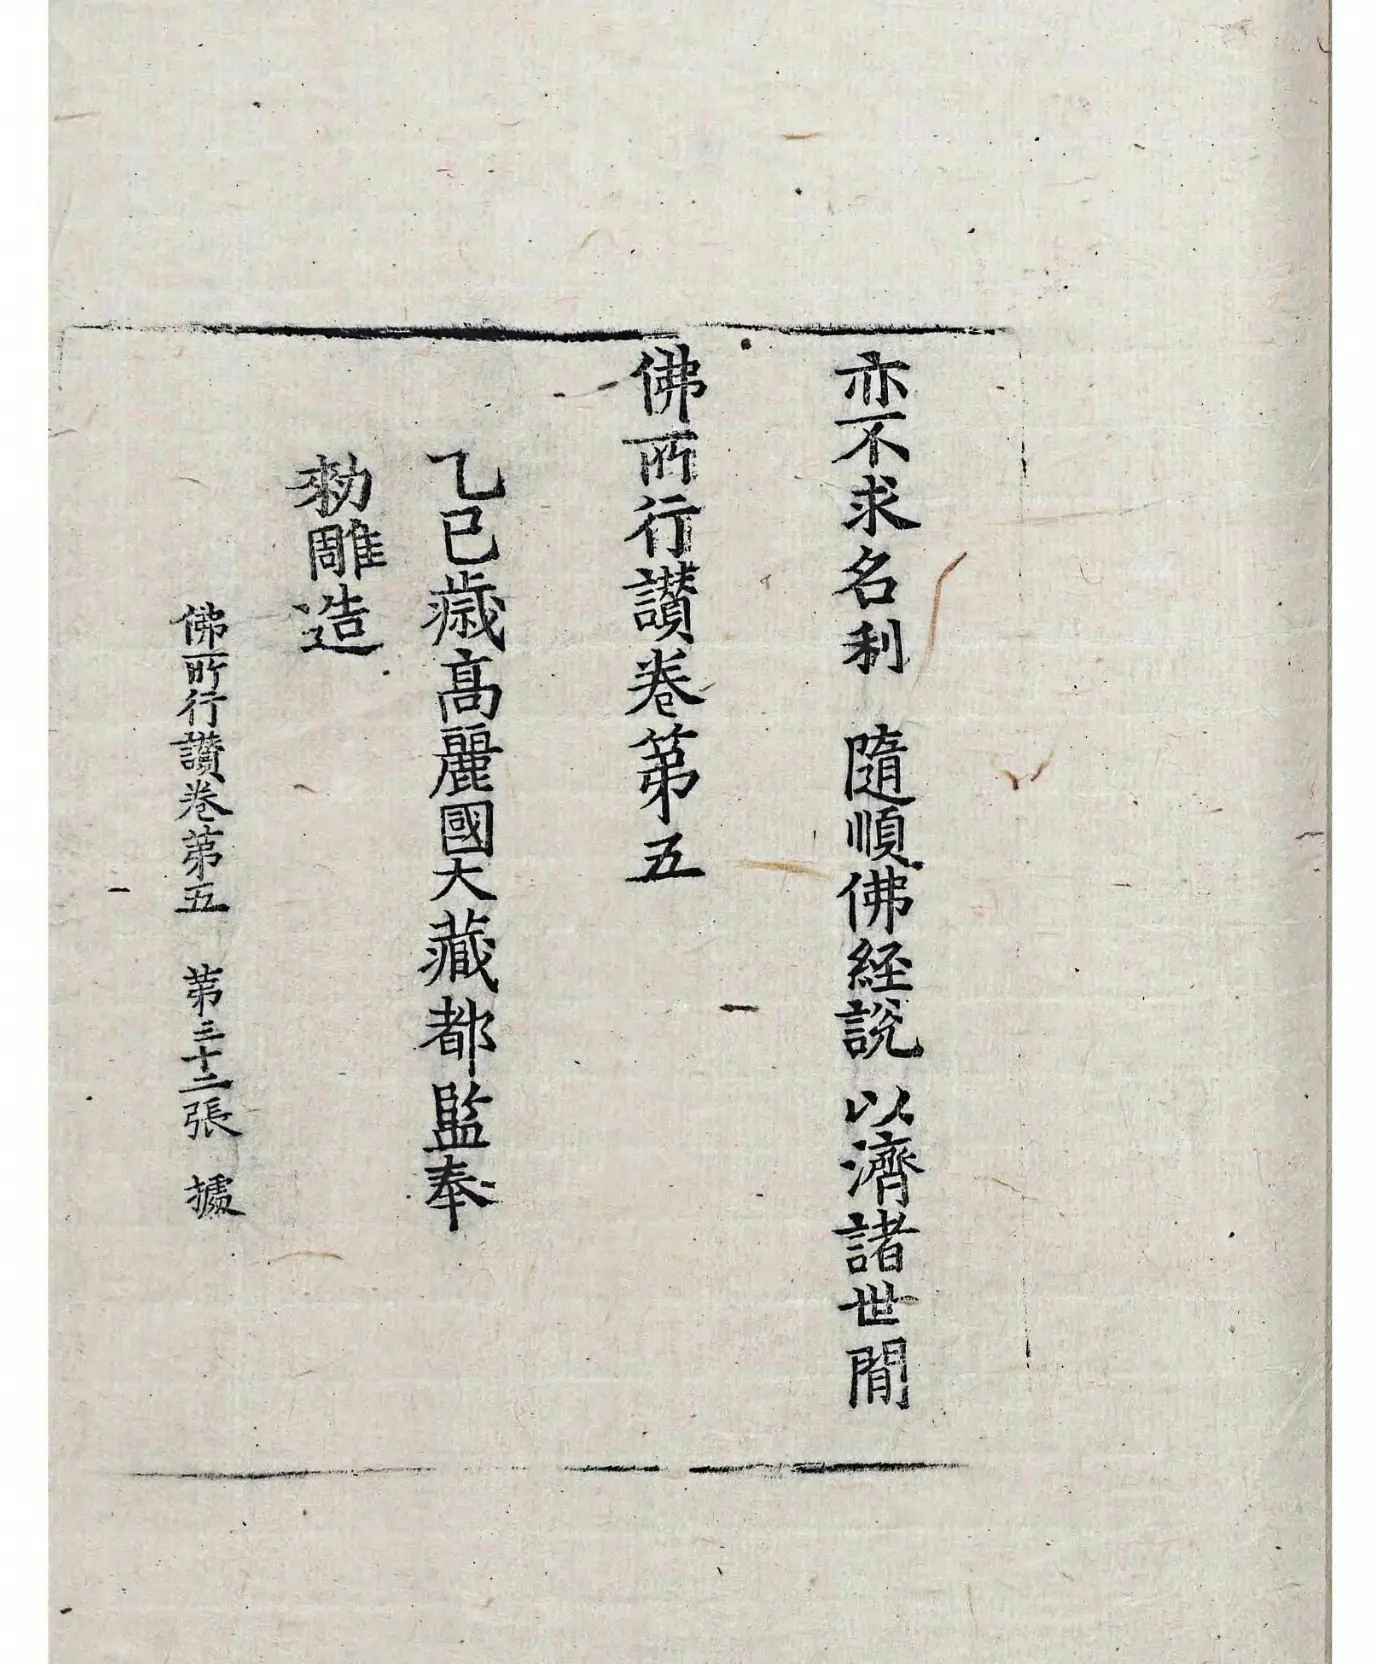 亦不求名利 隨順佛經說 以濟諸世間
佛所行讃卷第五
乙巳歲高麗國大藏都監奉
勑雕造
佛所行讃卷第五 第三十二張 據